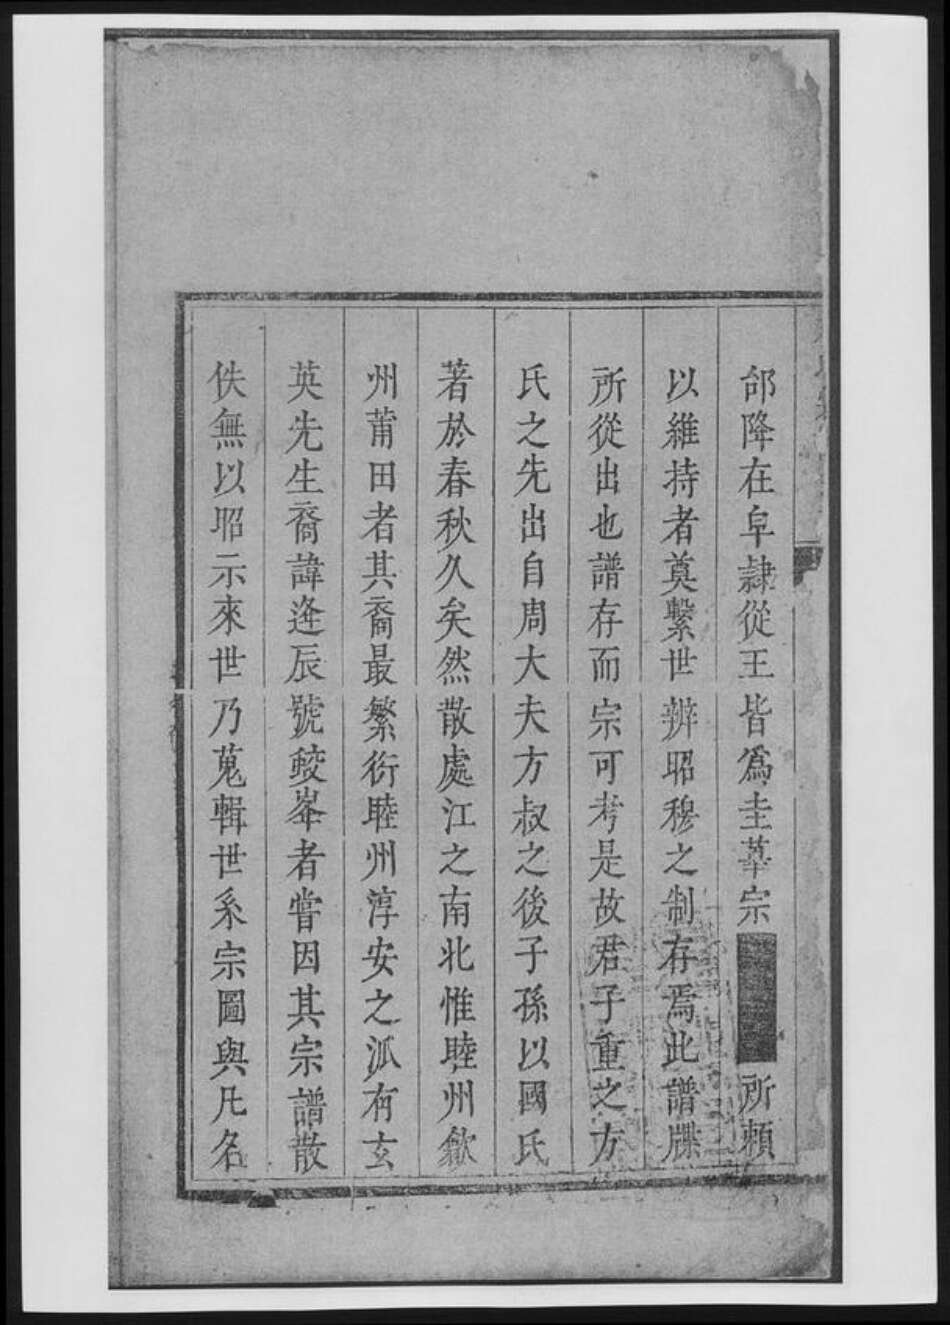 郤降在皁隷從王皆爲圭華宗所賴
以維持者奠繫世辨昭穆之制存焉此譜牒
所從出也譜存而宗可考是故君子重之方
氏之先出自周大夫方叔之後子孫以國氏
著於春秋久矣然散處江之南北惟睦州歙
州莆田者其裔最繁衍睦州淳安之派有玄
英先生裔諱逢辰號蛟峯者嘗因其宗譜散
佚無以昭示來世乃蒐輯世系宗圖與凡名